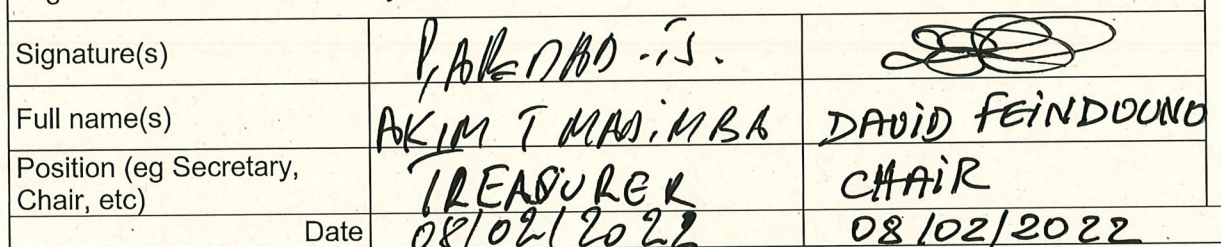 Signature(s)
Full name(s) AKIM T MADIMBA DAVID FEINDOUNO
Position (eg Secretary,
Chair, etc) TREASURER CHAIR
Date 08/02/2022 08/02/2022